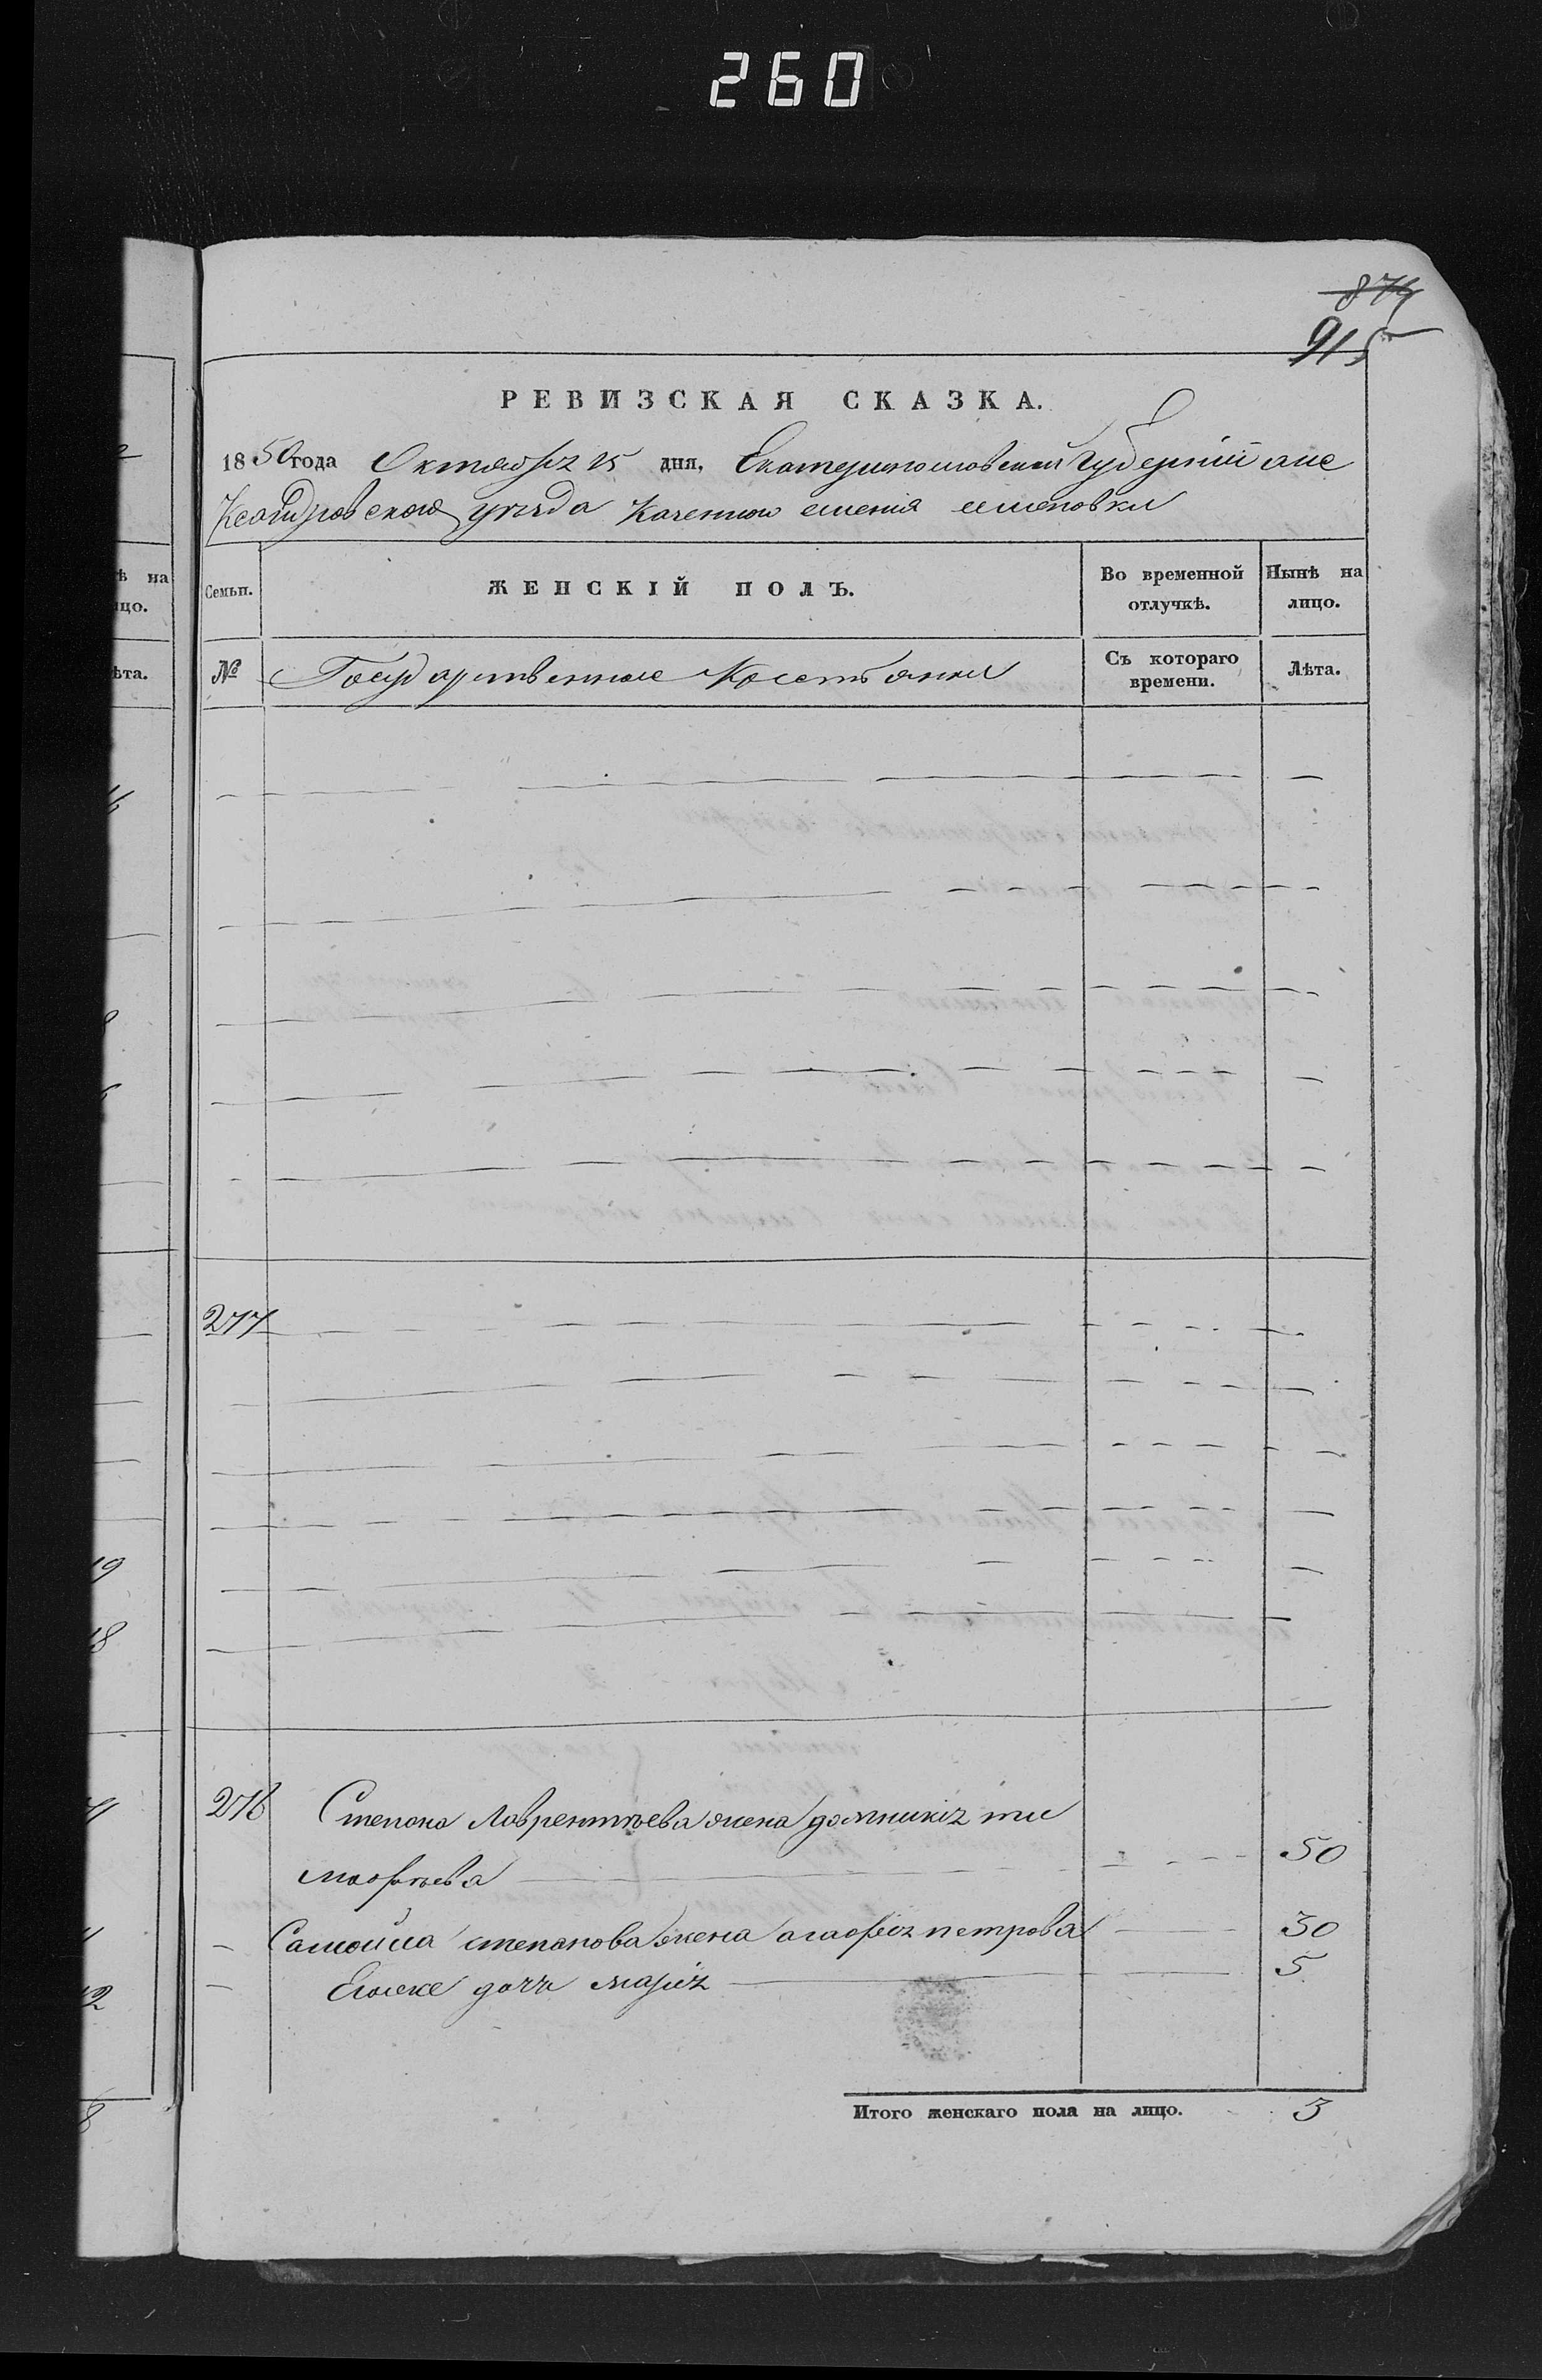 260
874
915
РЕВИЗСКАЯ СКАЗКА.
1850 года Октября 15 дня, Екатеринославской Губернии але
Ксандровского уезда Казенного имения семеновки
ѣ на
ицо.
ѣта.
Семьи.
ЖЕНСКІЙ ПОЛЪ.
Во временной отлучкѣ.
Нынѣ на лицо.
№
Государственные Крестьянки
Съ котораго времени.
Лѣта.
277
278 Степана Лаврентьева жена домникия ти
мофьева 50
Самойла степанова жена агафия петрова 30
Его дочь мария 5
Итого женскаго пола на лицо. 3
19
18